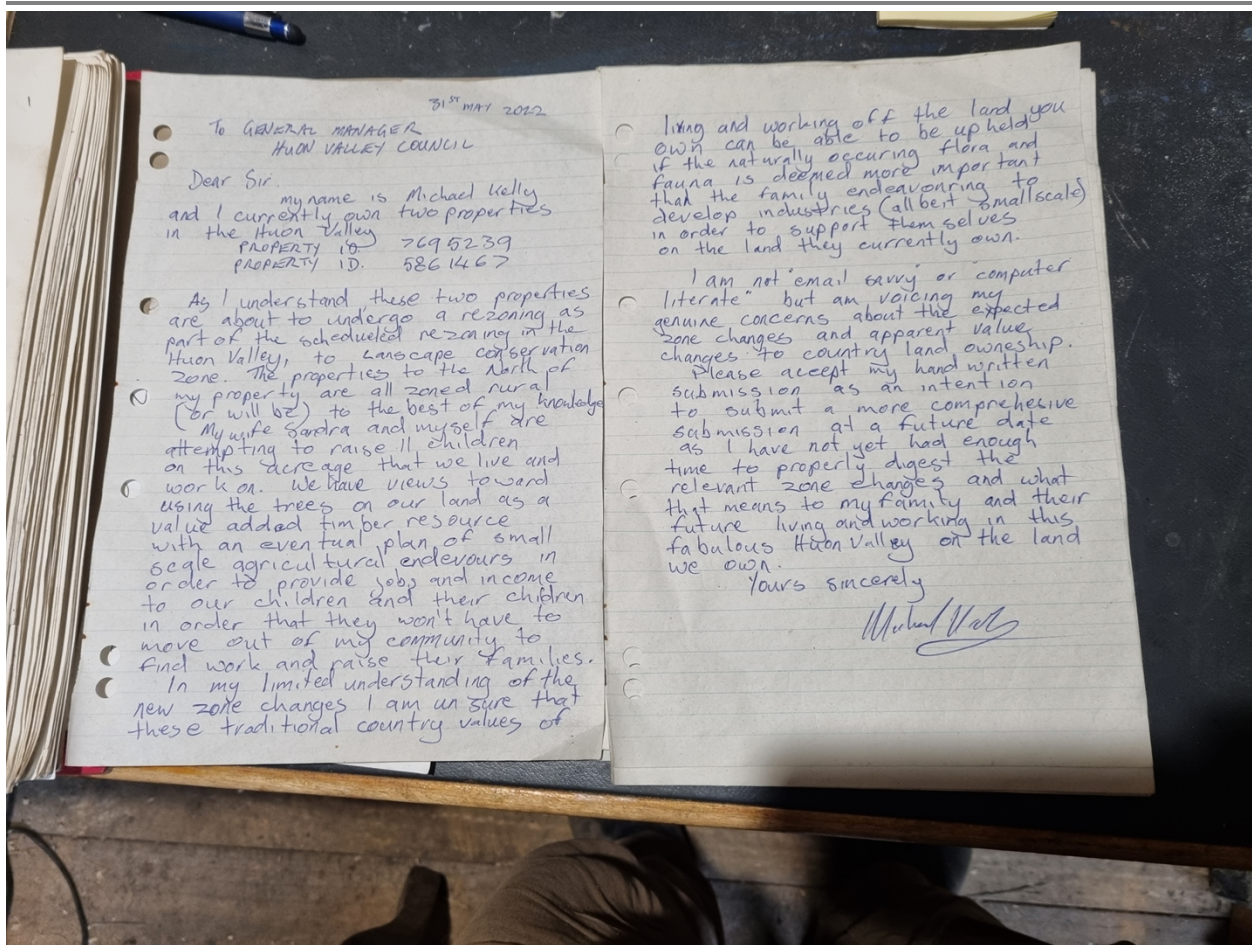 31ST MAY 2022
To GENERAL MANAGER
HUON VALLEY COUNCIL
Dear Sir.
my name is Michael Kelly
and I currently own two properties
in the Huon Valley
PROPERTY ID. 7695239
PROPERTY I.D. 5861467
As I understand these two properties
are about to undergo a rezoning as
part of the scheduled rezoning in the
Huon Valley, to Lanscape conservation
zone. The properties to the North of
my property are all zoned rural
(or will be) to the best of my knowledge
My wife Sandra and myself are
attempting to raise 11 children
on this acreage that we live and
work on. We have views toward
using the trees on our land as a
value added timber resource
with an eventual plan of small
scale agricultural endevours in
order to provide jobs and income
to our children and their children
in order that they won't have to
move out of my community to
find work and raise their families.
In my limited understanding of the
new zone changes I am un sure that
these traditional country values of
living and working off the land you
own can be able to be upheld
if the naturally occuring flora and
fauna is deemed more important
than the family endeavouring to
develop industries (all beit smallscale)
in order to support them selves
on the land they currently own.
I am not "email savvy" or "computer
literate" but am voicing my
genuine concerns about the expected
zone changes and apparent value
changes to country land ownership.
Please accept my hand written
submission as an intention
to submit a more comprehesive
submission at a future date
as I have not yet had enough
time to properly digest the
relevant zone changes and what
that means to my family and their
future living and working in this
fabulous Huon Valley on the land
we own.
Yours sincerely